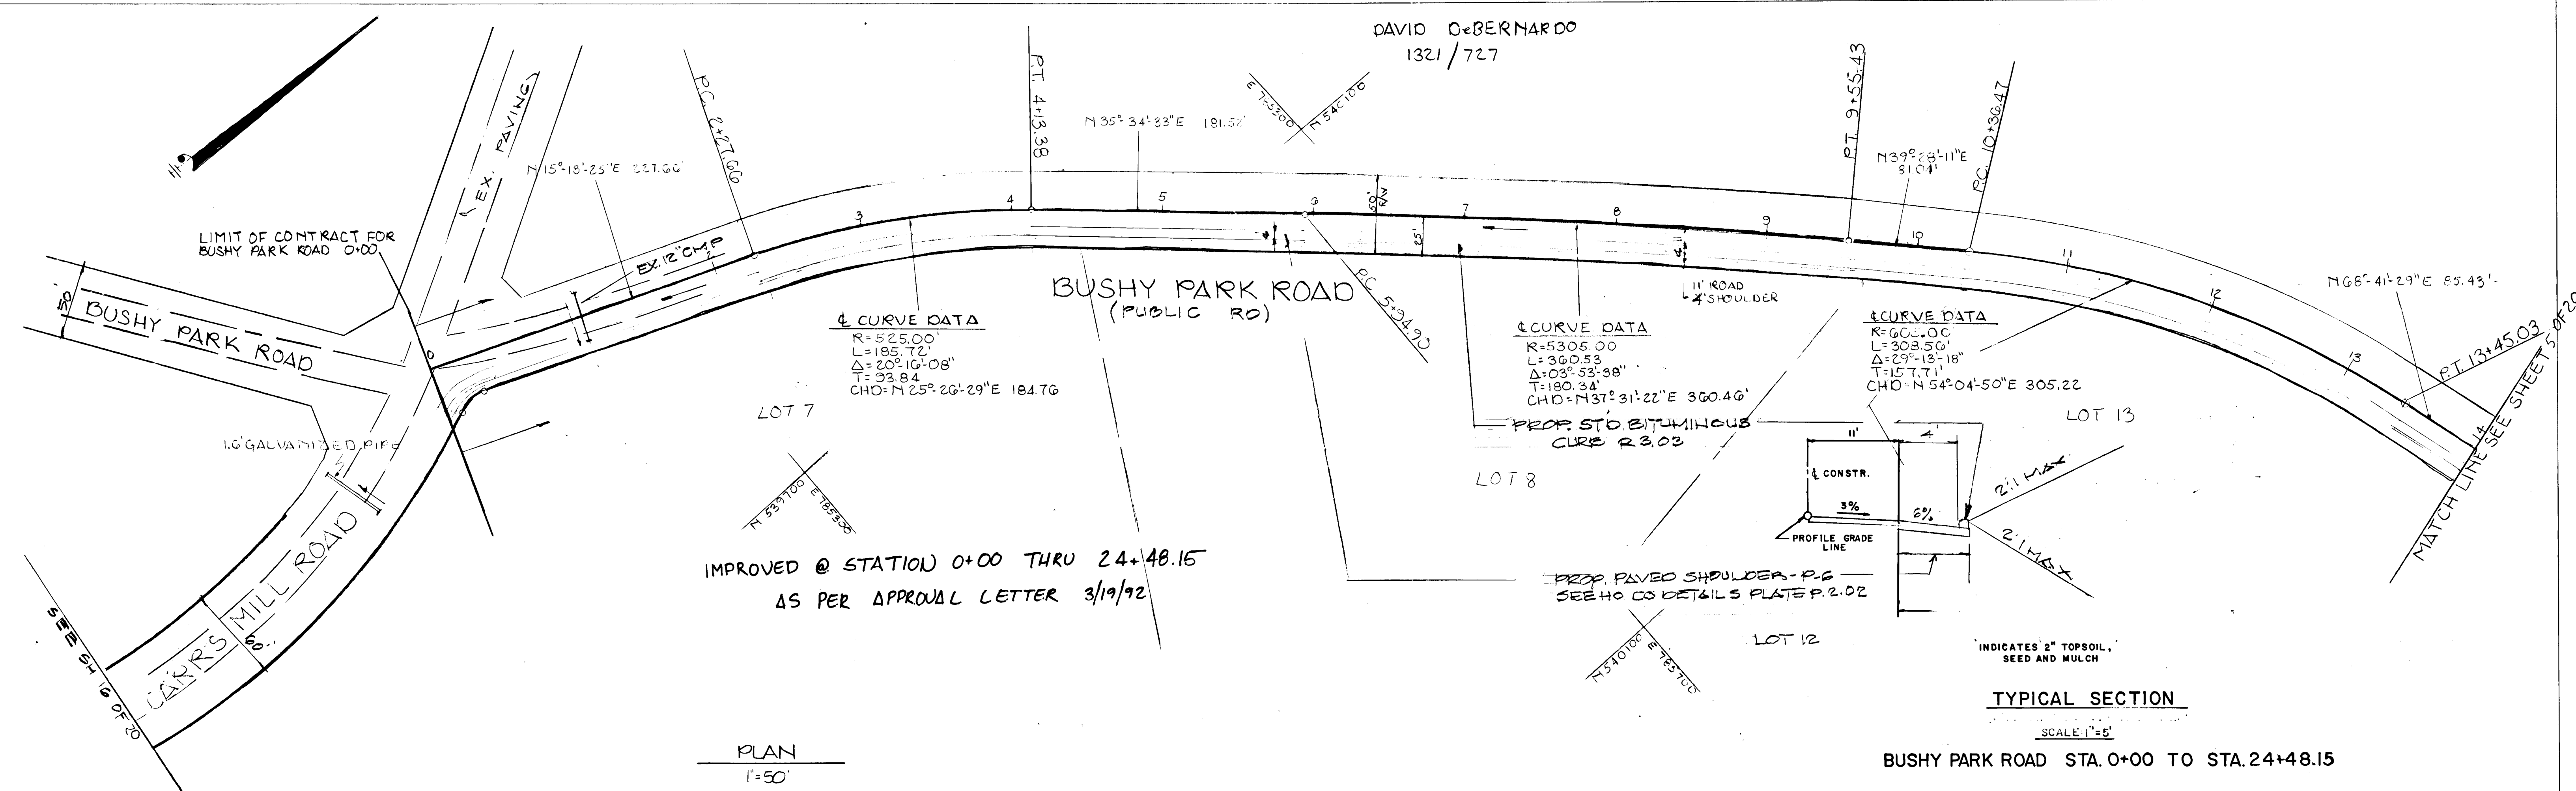 DAVID DeBERNARDO
1321/727
E 785200
P.T. 4+13.38
P.C. 2+27.66
EX. PAVING
N 35°-34'-33"E 181.52'
P.T. 9+55.43
N39°-28'-11"E
81.04'
P.C. 10+36.47
N 15°-18'-25"E 227.66'
LIMIT OF CONTRACT FOR
BUSHY PARK ROAD 0+00
EX. 12" CMP
50'
R/W
25'
0
2
3
4
5
6
7
8
9
10
11
12
13
14
50'
BUSHY PARK ROAD
BUSHY PARK ROAD
(PUBLIC RD)
P.C. 5+94.90
11' ROAD
4' SHOULDER
N68°-41'-29"E 85.43'
P.T. 13+45.03
MATCH LINE SEE SHEET 5 OF 20
℄ CURVE DATA
R=525.00'
L=185.72'
Δ=20°-16'-08"
T=93.84
CHD=N 25°-26'-29"E 184.76
℄ CURVE DATA
R=5305.00
L=360.53
Δ=03°-53'-38"
T=180.34'
CHD=N37°-31'-22"E 360.46'
℄ CURVE DATA
L=308.56'
Δ=29°-13'-18"
T=157.71'
CHD=N 54°-04'-50"E 305.22
LOT 7
LOT 8
LOT 13
LOT 12
PROP. STD. BITUMINOUS
CURB R 3.03
GALVANIZED PIPE
N 539700
E 785350
11'
4'
℄ CONSTR.
3%
6%
PROFILE GRADE
LINE
2:1 MAX
2:1 MAX
IMPROVED @ STATION 0+00 THRU 24+48.15
AS PER APPROVAL LETTER 3/19/92
PROP. PAVED SHOULDER - P-6
SEE HO CO DETAILS PLATE P.2.02
CARRS MILL ROAD
60'
SEE SH 16 OF 20
N540100
E 785700
INDICATES 2" TOPSOIL,
SEED AND MULCH
TYPICAL SECTION
SCALE: 1"=5'
BUSHY PARK ROAD STA. 0+00 TO STA. 24+48.15
PLAN
1"=50'